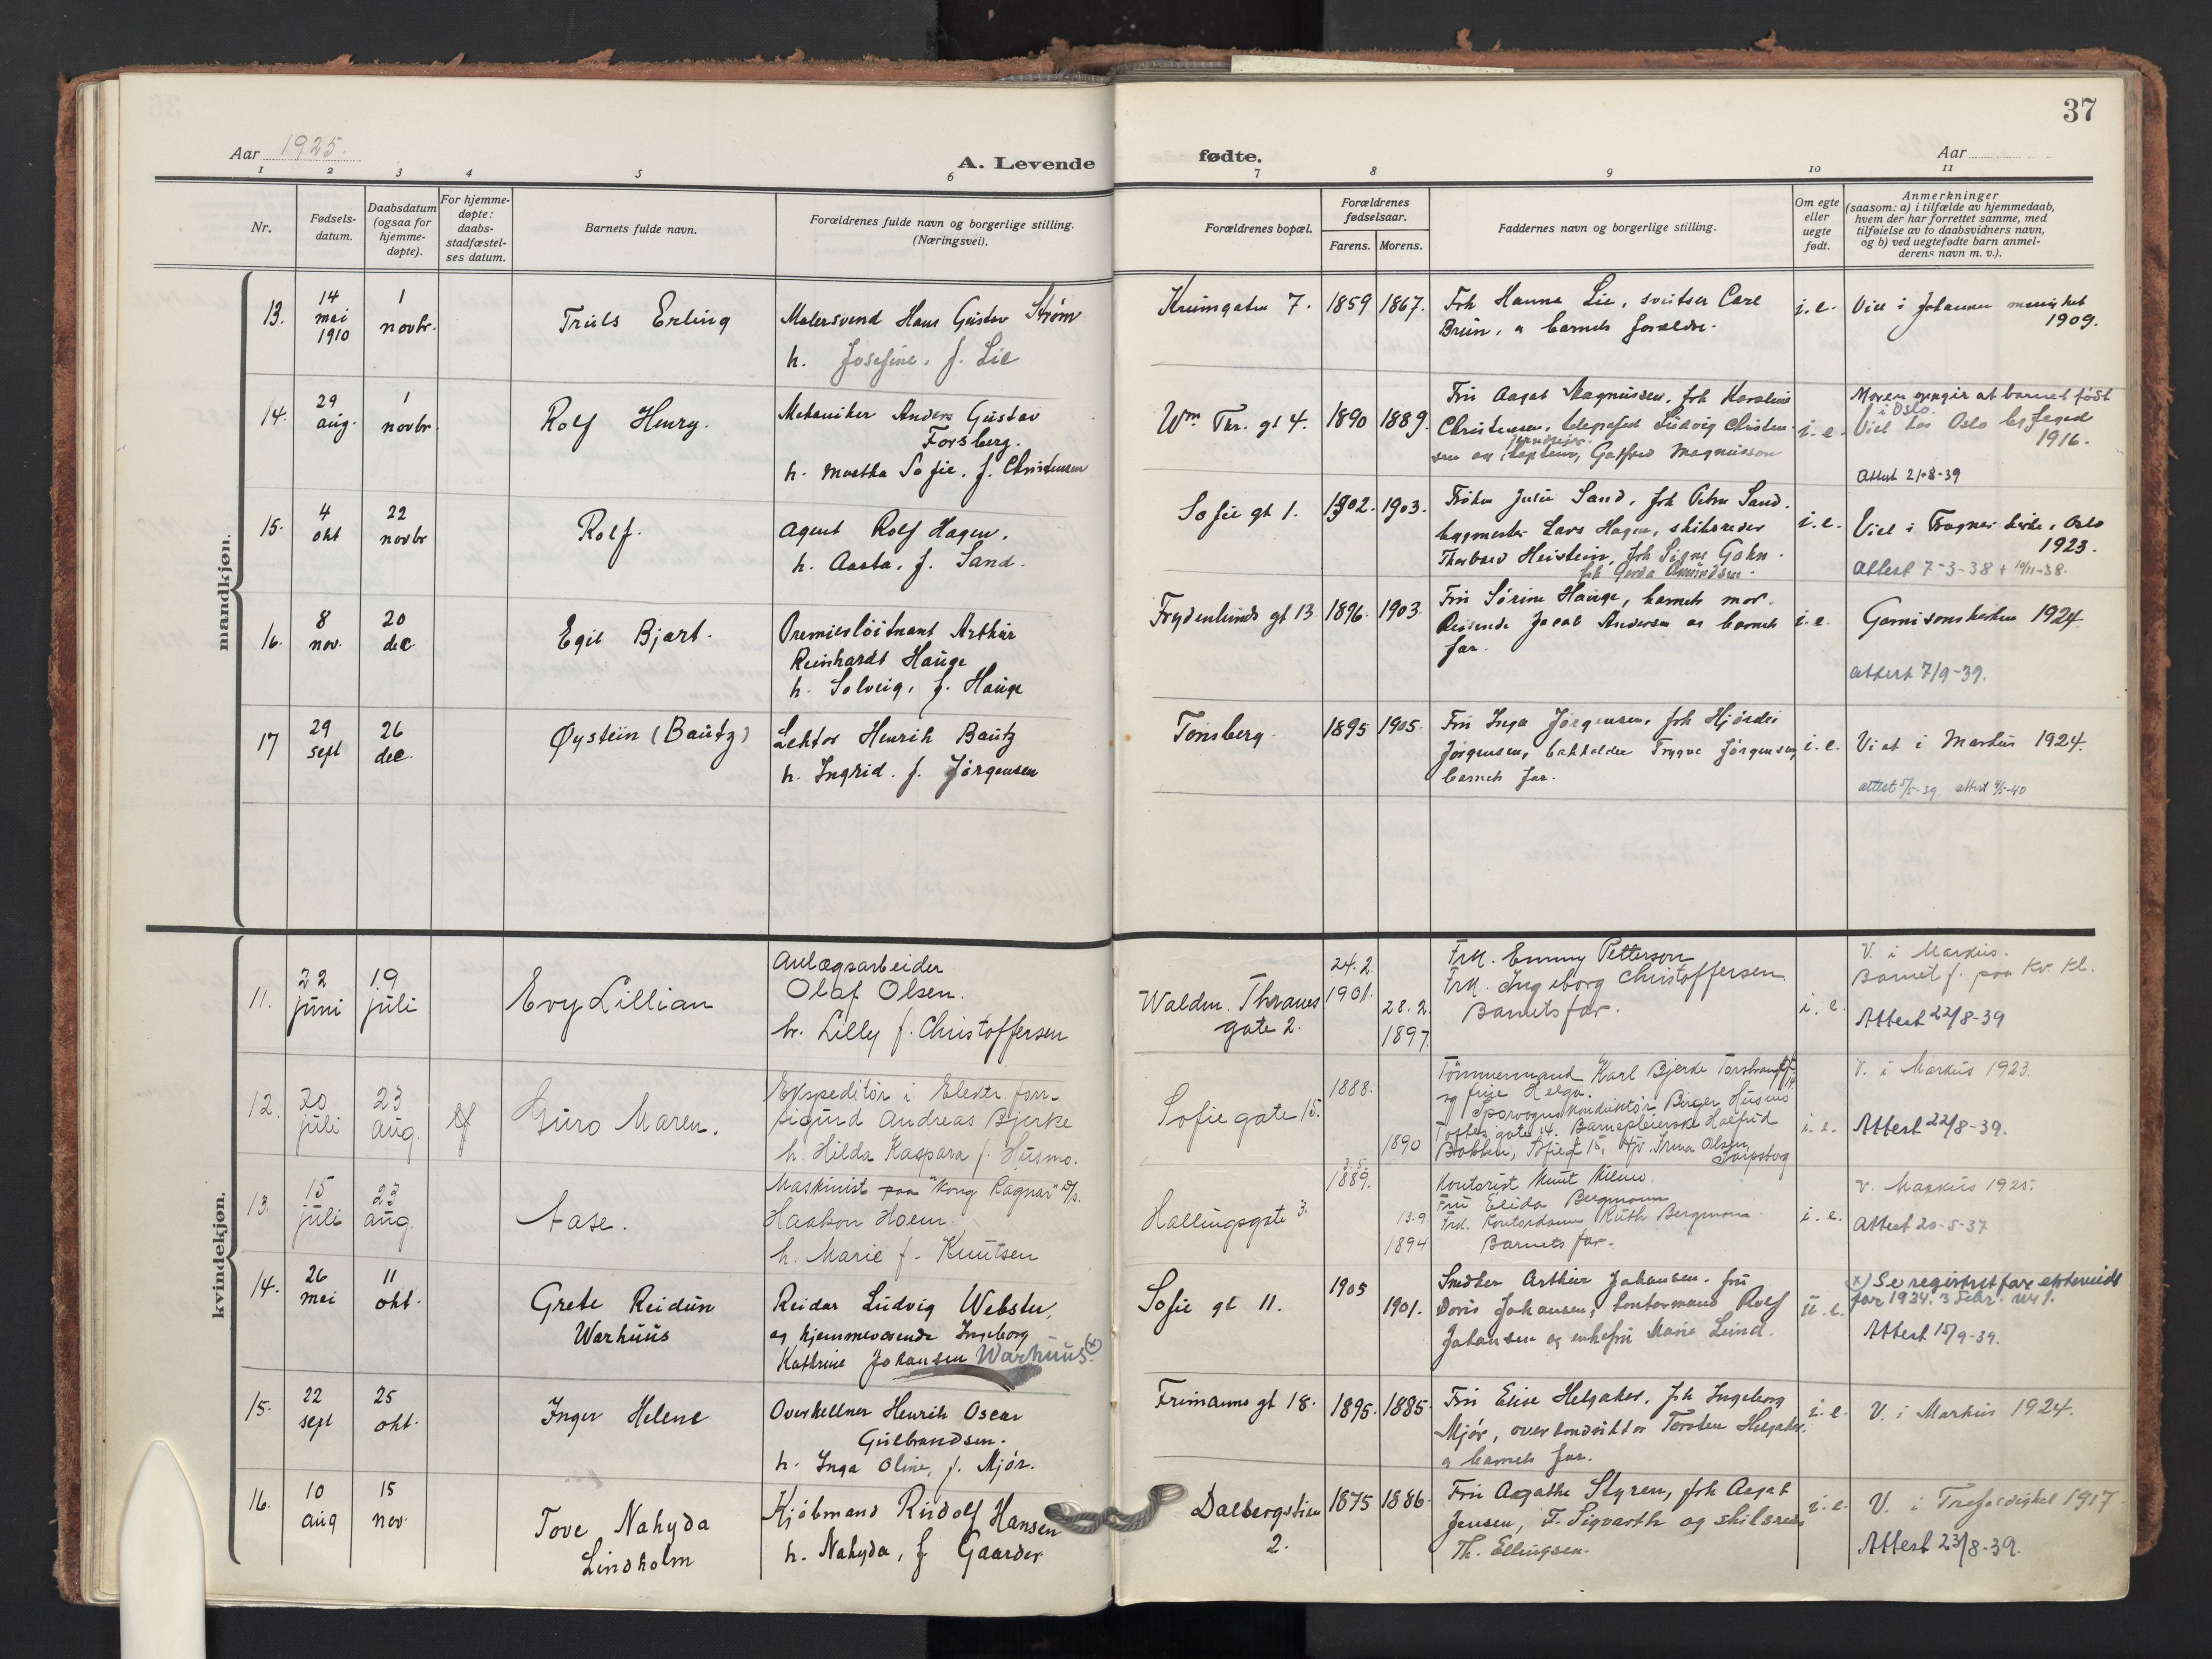 37
Aar 1925.
A. Levende
fødte.
Aar
1 2 3 4 5 6 7 8 9 10 11
Nr.
Fødsels-
datum.
Daabsdatum
(ogsaa for
hjemme-
døpte).
For hjemme-
døpte:
daabs-
stadfæstel-
ses datum.
Barnets fulde navn.
Forældrenes fulde navn og borgerlige stilling.
(Næringsvei).
Forældrenes bopæl.
Forældrenes
fødselsaar.
Farens. Morens.
Faddernes navn og borgerlige stilling.
Om egte
eller
uegte
født.
Anmerkninger
(saasom: a) i tilfælde av hjemmedaab,
hvem der har forrettet samme, med
tilføielse av to daabsvidners navn,
og b) ved uegtefødte barn anmel-
derens navn m. v.).
mandkjøn.
13.
14
mai
1910
1
novbr.
Truls Erling
Malersvend Hans Gustav Strøm
h. Josefine, f. Lie
7.
1859 1867.
Frk Hanna Lie,
Carl
Bruun, barnets forældre.
i.e.
Viet i Johannes menighet
1909.
14.
29
aug.
1
novbr
Rolf Henry.
Mekaniker Anders Gustav
Forsberg.
h. Martha Sofie, f. Christensen
Wm Thr. gt 4.
1890 1889.
Fru Aagot Magnussen, frk Karoline
Christensen, Ludvig Christen-
sen Magnusson
i.e.
Moren opgir at barnet født
i Oslo.
Viet hos Oslo byfoged
1916.
Attest 21-8-39
15.
4
okt
22
novbr
Rolf.
Agent Rolf Hagen.
h. Aasta, f. Sand.
Sofie gt 1.
1902. 1903.
Frøken Julie Sand, frk Petra Sand.
bygmester Lars Hagen, skibsreder
Thorbard Heistein, frk Signe Gahn.
frk Gerda Amundsen.
i.e.
Viet i Frogner kirke, Oslo
1923.
Attest 7-3-38 + 10/11-38.
16.
8
nov.
20
dec.
Egil Bjart.
Premierløitnant Arthur
Reinhardt Hauge
h. Solveig, f. Hauge
Frydenlunds gt 13
1896. 1903.
Fru Sørine Hauge, barnets mor.
Reisende Jacob Andersen og barnets
far.
i.e.
Garnisonskirken 1924.
Attest 7/9-39.
17
29
sept
26
dec.
Øystein (Bautz)
Lektor Henrik Bautz
h. Ingrid. f. Jørgensen
Tønsberg.
1895 1905.
Fru Inga Jørgensen, frk Hjørdis
Jørgensen, bokholder Trygve Jørgensen,
barnets far.
i.e.
Viet i Markus 1924.
attest 5/5-39. attest 4/5-40
kvindekjøn.
11.
22
juni
19
juli
Evy Lillian
Anlægsarbeider
Olaf Olsen.
h. Lilly f. Christoffersen
Waldm. Thranes
gate 2.
24.2.
1901.
28.2.
1897.
Frk. Emmy Petterson
Frk. Ingeborg Christoffersen
Barnets far.
i.e.
V. i Markus.
Barnet f. paa Kv. Kl.
Attest 22/8-39
12.
20
juli
23
aug.
Guro Maren.
Ekspeditør i Elektr. forr.
Sigurd Andreas Bjerke
h. Hilda Kaspara f. Husmo.
Sofie gate 15.
1888.
1890
Tømmermand Karl Bjerke
og frue Helga.
Sporvognskonduktør Birger Husmo
Toftes gate 14. Barnepleierske Halfrid
Bakken, Sofiegt 15, Hjr. Irma Olsen
Sarpsborg
i.e.
V. i Markus 1923.
Attest 22/8-39.
13.
15
juli
23
aug.
Aase.
Maskinist paa "Kong Ragnar" D/s.
Haakon Hoem.
h. Marie f. Knutsen
Hallingsgate 3.
3.5.
1889.
13.9.
1894
Kontorist Knut
Fru Elida Bergmann
Frk. Kontordame Ruth Bergmann.
Barnets far.
i.e.
V. Markus 1925.
Attest 20-5-37
14.
26
mai
11
okt.
Grete Reidun
Warhuus
Reidar Ludvig Webster,
og hjemmeværende Ingeborg
Kathrine Johansen Warhuus. (x)
Sofie gt 11.
1905
1901.
Snedker Arthur Johansen. fru
Doris Johansen, kontormand Rolf
Johansen og enkefru Marie Lund.
u.e.
(x) Se registret for
for 1934. 3 febr. nr 1.
Attest 15/9-39.
15.
22
sept
25
okt.
Inger Helene
Overkellner Henrik Oscar
Gulbrandsen.
h. Inga Oline, f. Mjør.
Frimanns gt 18.
1895. 1885.
Fru Elise Helgaker, frk Ingeborg
Mjør, overkonduktør Torsten Helgaker.
og barnets far.
i.e.
V. i Markus 1924.
16.
10
aug
15
nov.
Tove Nahyda
Lindholm
Kjøbmand Rudolf Hansen
h. Nahyda, f. Gaarder
Dalbergstien
2.
1875 1886.
Fru Aagathe Styren, frk Aagot
Jensen, F. Sigvarth og skibsreder
Th. Ellingsen.
i.e.
V. i Trefoldighet 1917
Attest 23/8-39.